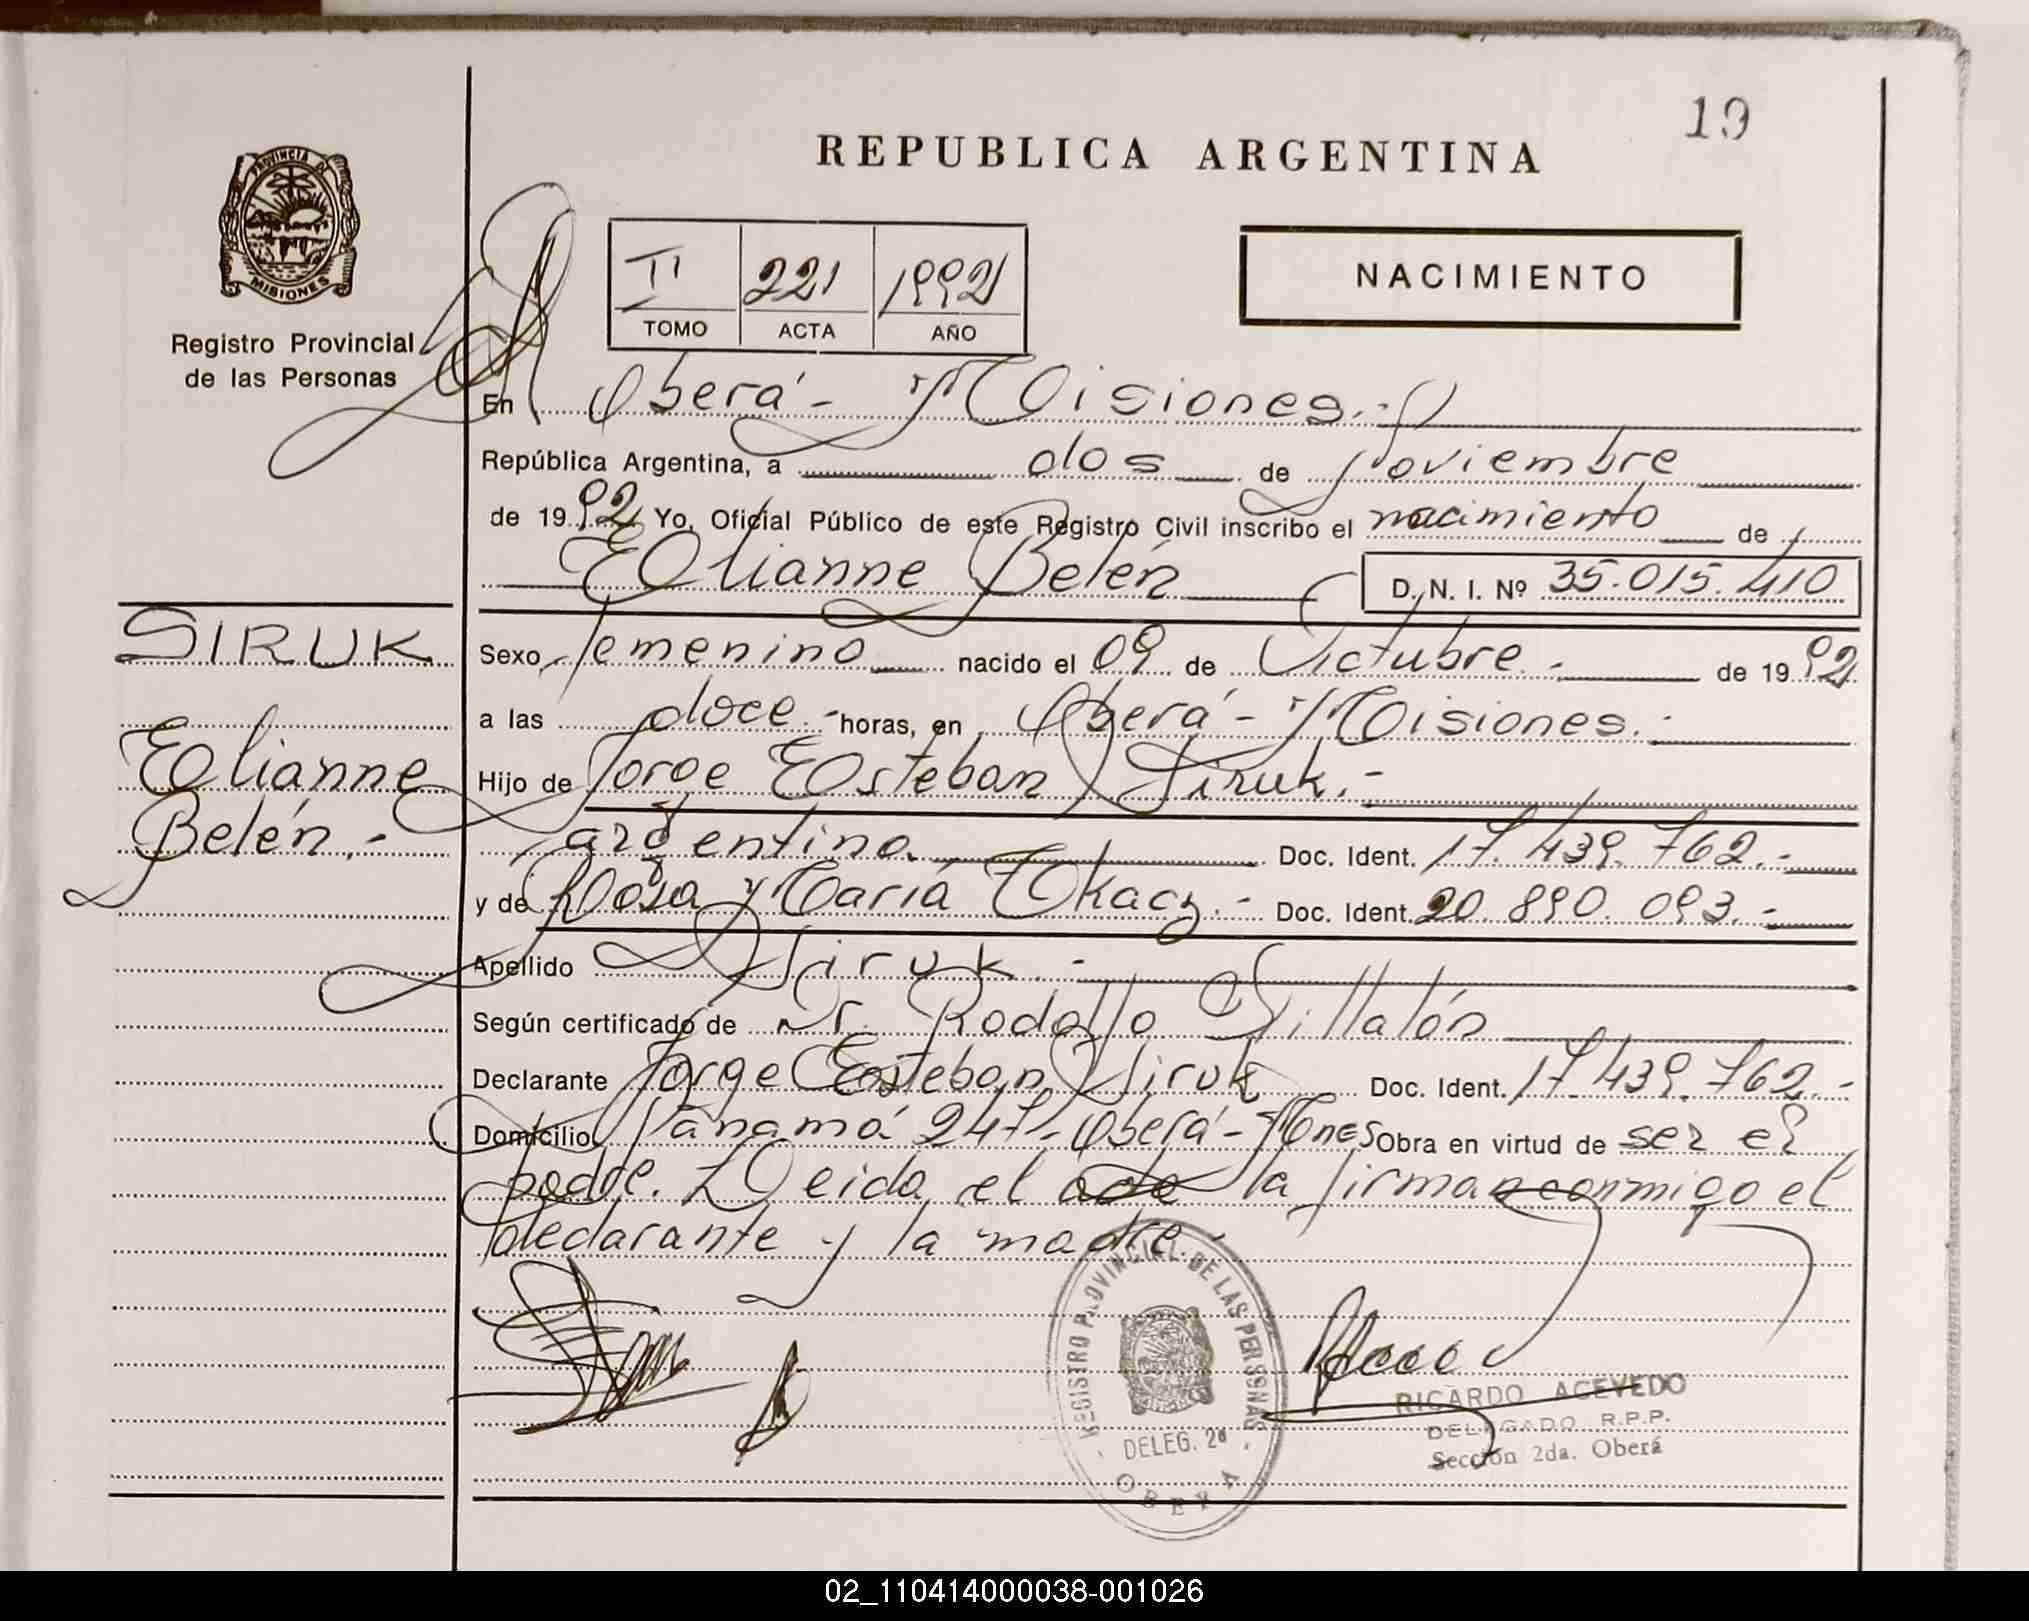 19
REPUBLICA ARGENTINA
PROVINCIA DE
MISIONES
Registro Provincial
de las Personas
II 221 1992
TOMO ACTA AÑO
NACIMIENTO
En Oberá - Misiones.-
República Argentina, a dos de Noviembre
de 1992 Yo, Oficial Público de este Registro Civil inscribo el nacimiento de
Elianne Belén D. N. I. Nº 35.015.410
SIRUK
Elianne
Belén.-
Sexo femenino nacido el 09 de Octubre.- de 1992
a las doce.- horas, en Oberá - Misiones.-
Hijo de Jorge Esteban Siruk.-
argentino Doc. Ident. 17.439.762.-
y de Rosa María Tkacz.- Doc. Ident. 20.890.093.-
Apellido Siruk.-
Según certificado de Dr. Rodolfo Villalón
Declarante Jorge Esteban Siruk Doc. Ident. 17.439.762.-
Domicilio Panamá 247 - Oberá - Mnes Obra en virtud de ser el
padre. Leida el acta la firman conmigo el
declarante y la madre.-
REGISTRO PROVINCIAL DE LAS PERSONAS
DELEG. 2ª
OBERA
RICARDO ACEVEDO
DELEGADO R.P.P.
Sección 2da. Oberá
02_110414000038-001026